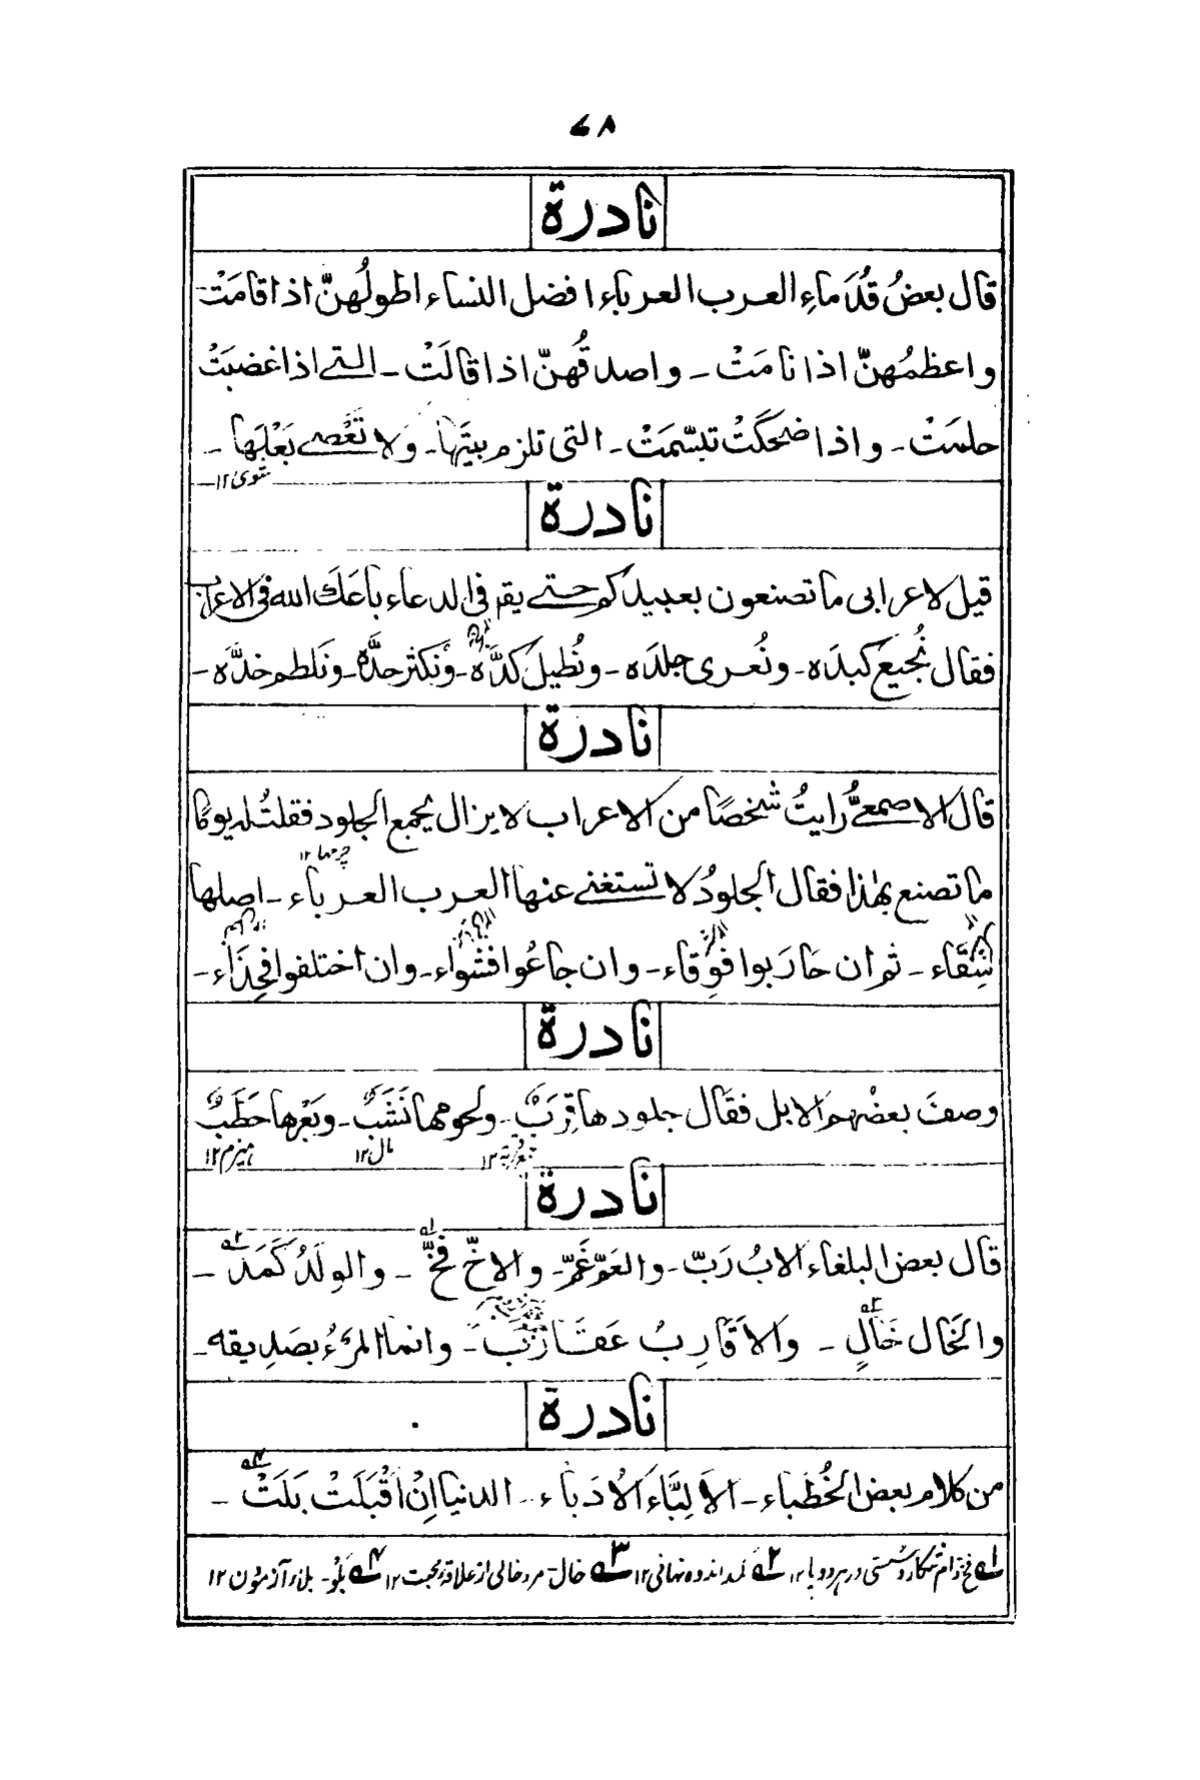 ٦٨
نادرة
قال بعضُ قُدَماءِ العرب العرباء افضل النساء اطولُهنّ اذا قامَتْ
واعظمُهنّ اذا نامَتْ ـ واصدقُهنّ اذا قالَتْ ـ التی اذا غضبَتْ
حلمَتْ ـ واذا ضحكَتْ تبسّمَتْ ـ التی تلزم بیتَها ـ ولا تعْصے بَعْلَها ـ
نادرة
قیل لاعرابی ما تصنعون بعبیدکم حتے یقم فی الدعاء باعَكَ الله فی الاعراب
فقال نُجیعَ کبدَه ـ ونُعری جلدَه ـ ونُطیل کدَّه ـ ونکثر حدَّه ـ ونلطم خدَّه ـ
نادرة
قال الاصمعیُّ رایتُ شخصًا من الاعراب لا یزال یجمع الجلود فقلتُ له یومًا
چرمها ١٢
ما تصنع بهٰذا فقال الجلودُ لا تستغنے عنها العرب العرباء ـ اصلها
سِقَاء ـ ثم ان حارَبوا فوِقاء ـ وان جاعُوا فشِواء ـ وان اختلفوا فحِذَاء ـ
نادرة
وصفَ بعضُهم الابل فقال جلودها قِرَبٌ ـ ولحومها نَشَبٌ ـ وبَعْرها حَطَبٌ
مال ١٢ هیزم ١٢
نادرة
قال بعض البلغاء الابُ رَبّ ـ والعَمّ غَمّ ـ والاخّ فخّ ـ والولَدُ کَمَد ـ
والخال خَالٍ ـ والاَقَارِبُ عَقَارَبٌ ـ وانما المرءُ بصَدِیقه ـ
نادرة
من کلام بعض الخُطباء ـ الاَلِبَّاء الاُدَباء ـ الدنیا اِنْ اَقْبَلَتْ بَلَتْ ـ
١ فخ دام شکار وسُستی در هر دو پا ١٢ ٢ کمد اندوه نهانی ١٢ ٣ خال ـ مرد خالی از علاقۀ محبت ١٢ ٤ بَلْو ـ بلاء آزمون ١٢